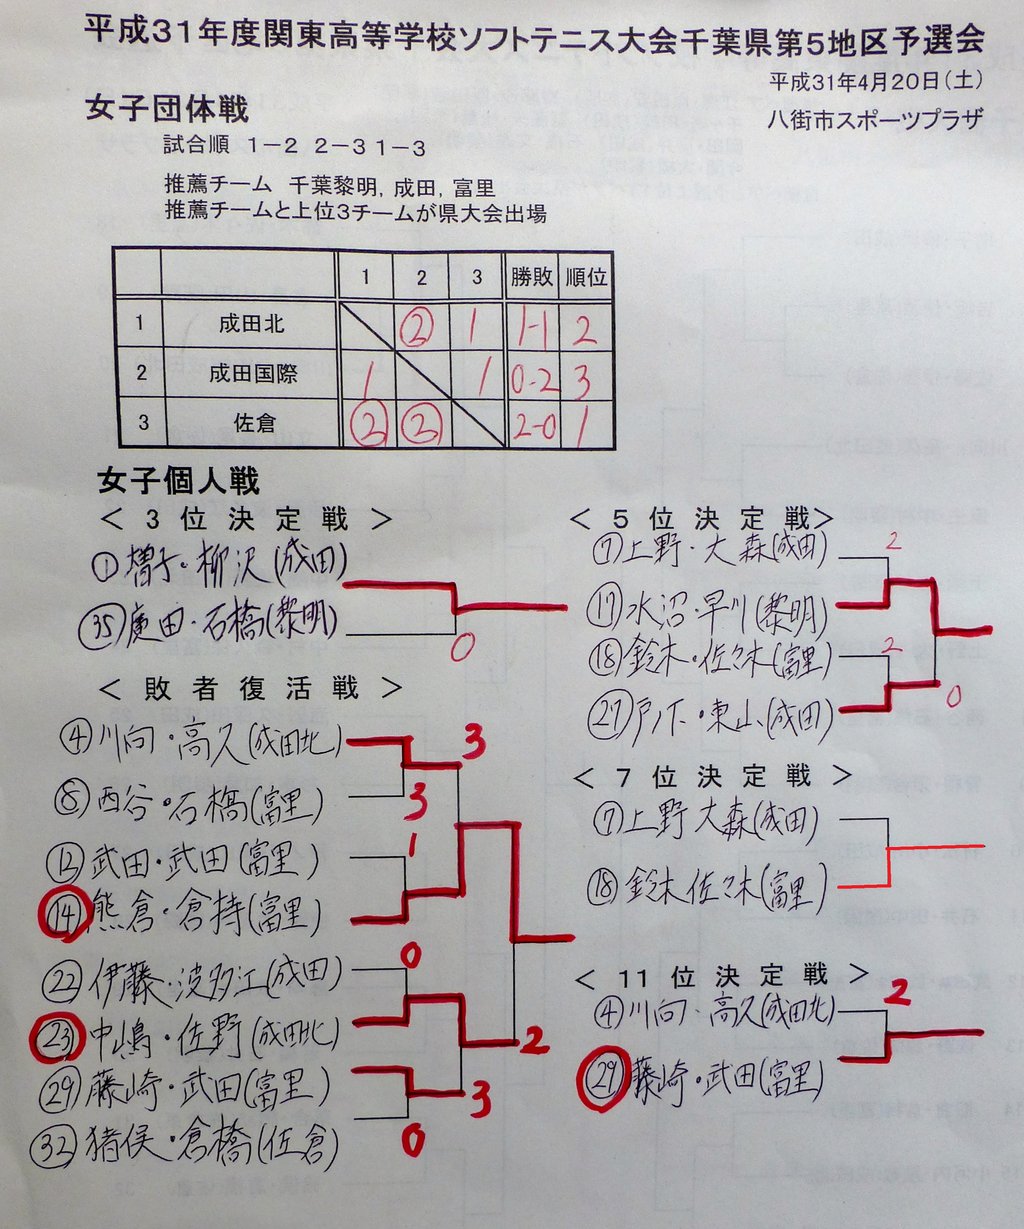 平成31年度関東高等学校ソフトテニス大会千葉県第5地区予選会
平成31年4月20日(土)
女子団体戦
八街市スポーツプラザ
試合順 1-2 2-3 1-3
推薦チーム 千葉黎明, 成田, 富里
推薦チームと上位3チームが県大会出場
1 2 3 勝敗 順位
1 成田北 ② 1 1-1 2
2 成田国際 1 1 0-2 3
3 佐倉 ② ② 2-0 1
女子個人戦
< 3 位 決 定 戦 >
①増子・柳沢(成田)
㉟廣田・石橋(黎明)
0
< 敗 者 復 活 戦 >
④川向・高久(成田北)
3
⑧西谷・石橋(富里)
3
⑫武田・武田(富里)
1
⑭熊倉・倉持(富里)
0
㉒伊藤・波多江(成田)
㉓中嶋・佐野(成田北)
2
㉙藤崎・武田(富里)
3
㉜猪俣・倉橋(佐倉)
0
< 5 位 決 定 戦>
⑦上野・大森(成田)
2
⑰水沼・早川(黎明)
⑱鈴木・佐々木(富里)
2
㉗戸下・東山(成田)
0
< 7 位 決 定 戦 >
⑦上野 大森(成田)
⑱鈴木 佐々木(富里)
< 11 位 決 定 戦 >
④川向・高久(成田北)
2
㉙藤崎・武田(富里)